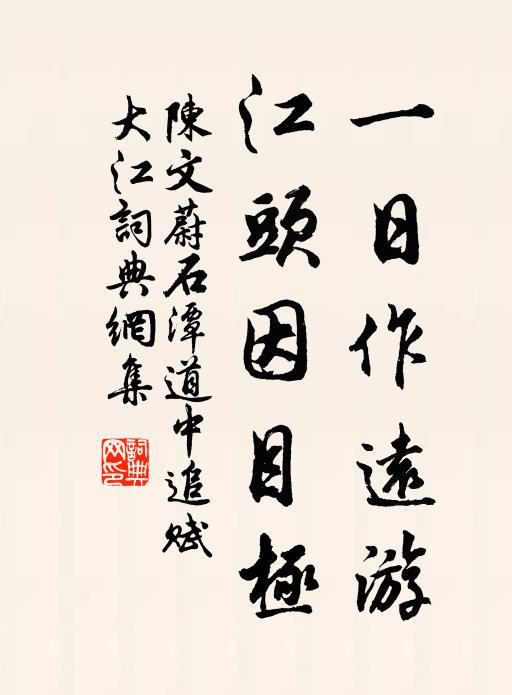 一日作遠游
江頭因目極
陳文蔚石潭道中追賦
大江詞典網集
詞典网印